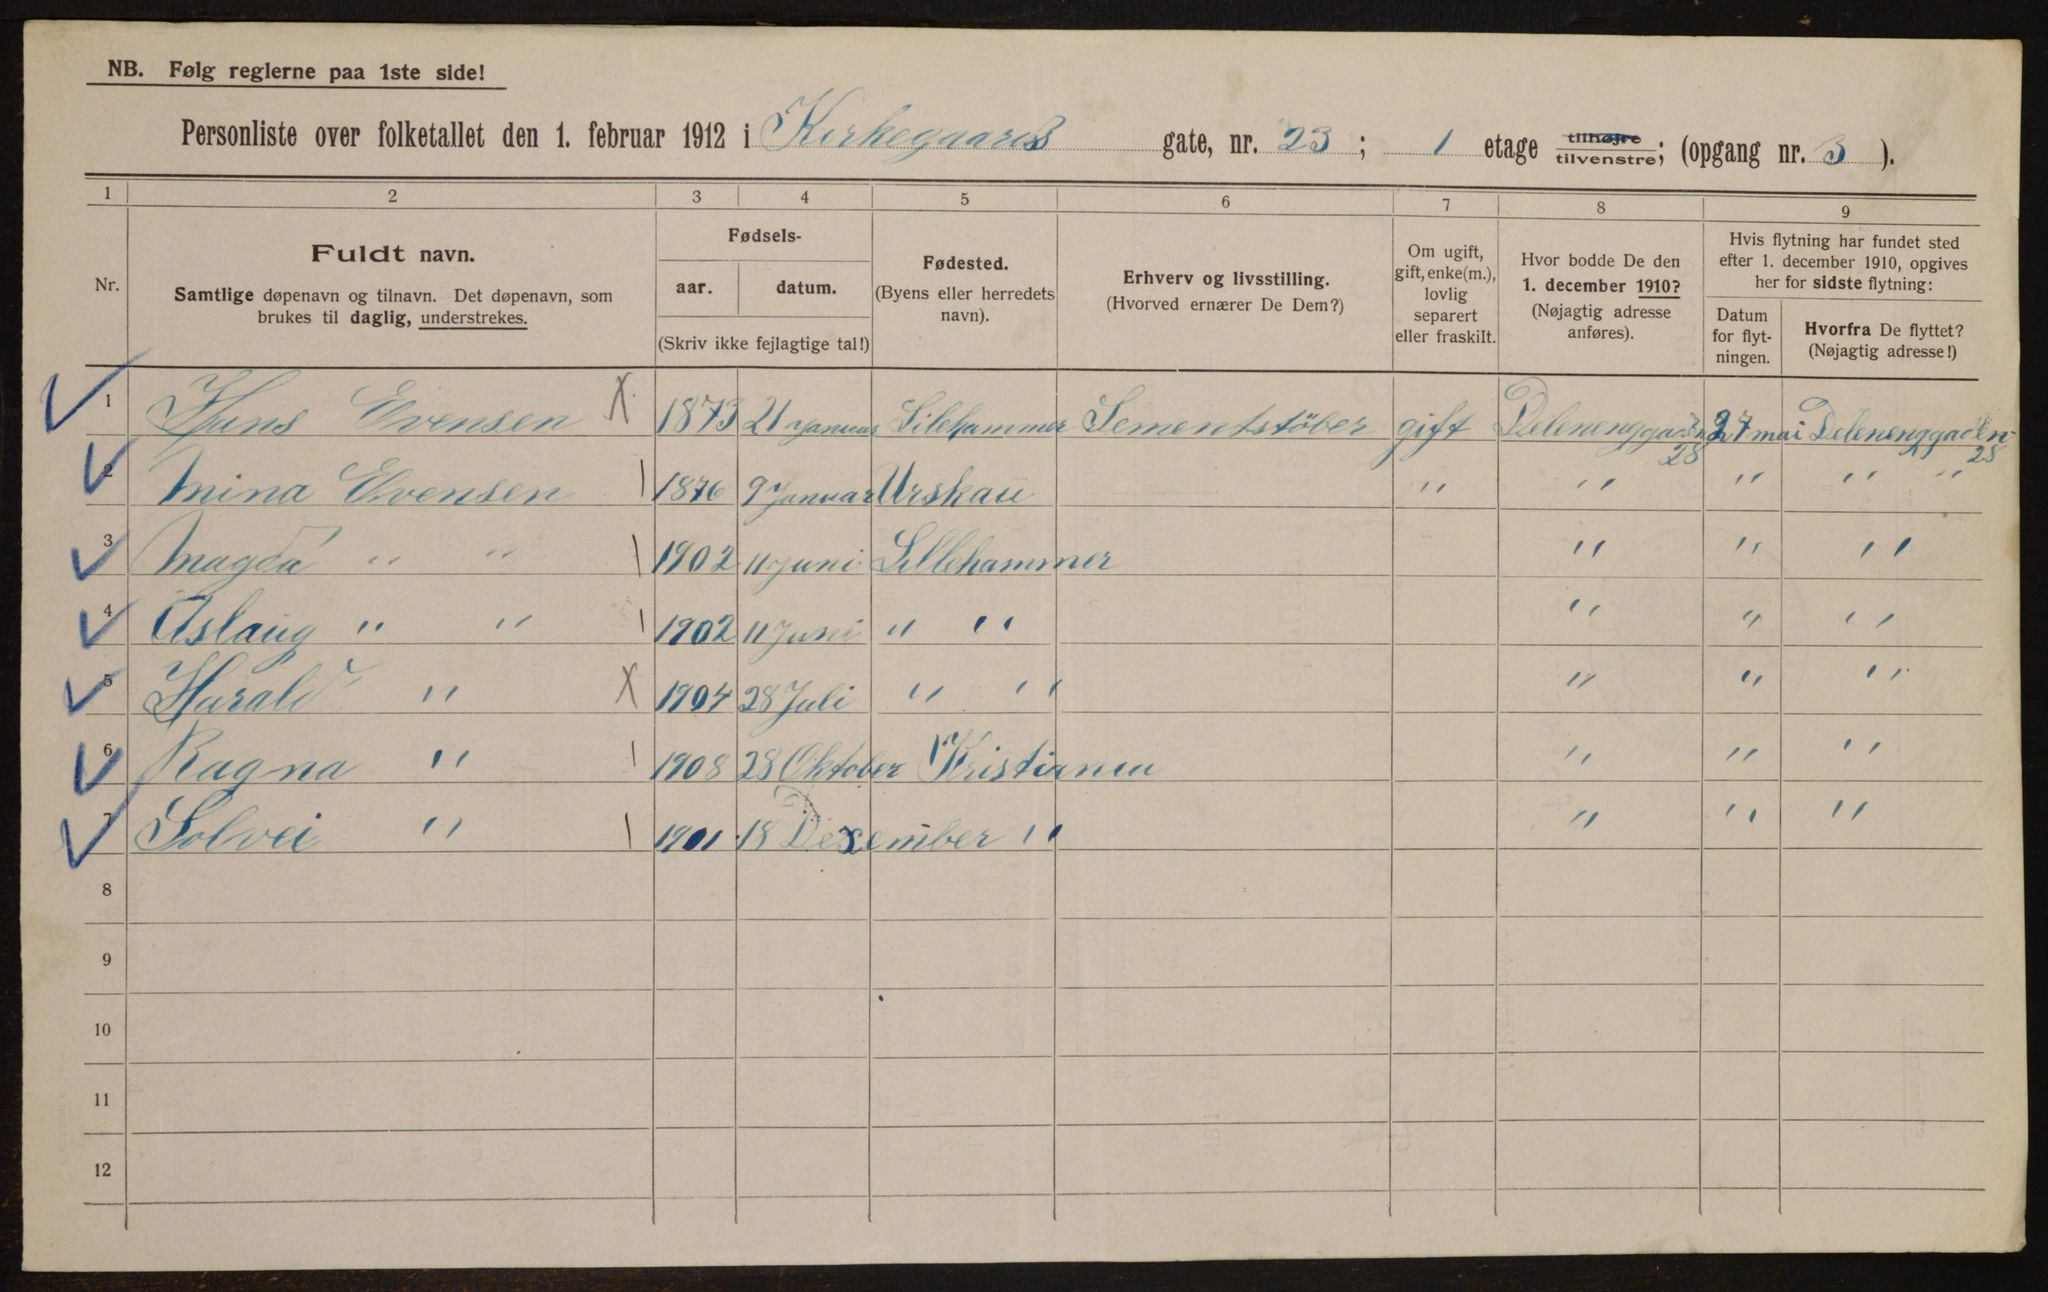 NB. Følg reglerne paa 1ste side!
Personliste over folketallet den 1. februar 1912 i Kirkegaards gate, nr. 23 ; 1 etage tilhøjre tilvenstre; (opgang nr. 3 ).
1 2 3 4 5 6 7 8 9
Nr. Fuldt navn. Samtlige døpenavn og tilnavn. Det døpenavn, som brukes til daglig, understrekes.
Fødsels-
aar. datum.
(Skriv ikke fejlagtige tal!)
Fødested. (Byens eller herredets navn).
Erhverv og livsstilling. (Hvorved ernærer De Dem?)
Om ugift, gift, enke(m.), lovlig separert eller fraskilt.
Hvor bodde De den 1. december 1910? (Nøjagtig adresse anføres).
Hvis flytning har fundet sted efter 1. december 1910, opgives her for sidste flytning:
Datum for flyt-ningen.
Hvorfra De flyttet? (Nøjagtig adresse!)
1 Hans Evensen X 1873 21 Januar Lilehammer Sementstöber gift Delenenggaden 28 27 mai Delenenggaden 28
2 Mina Evensen | 1876 9 Januar Urskau " " " " "
3 Magda " " | 1902 11 Juni Lillehammer " " "
4 Aslaug " " | 1902 11 Juni " " " " "
5 Harald " X 1904 28 Juli " " " " "
6 Ragna " | 1908 28 Oktober Kristiania " " "
7 Solvei " | 1901 18 Desember " " " "
8
9
10
11
12